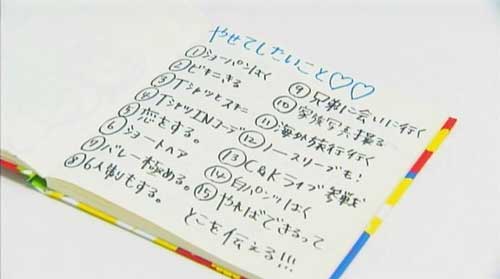 やせてしたいこと♡♡
①ショーパンはく
②ビキニきる
③Tシャツとスキニー
④TシャツINコーデ
⑤恋をする。
⑥ショートヘア
⑦バレー極める。
⑧6人制もする。
⑨兄弟に会いに行く
⑩家族写真撮る
⑪海外旅行行く
⑫ノースリーブも!
⑬C&Kライブ参戦
⑭白パンツはく
⑮やればできるって
とこを伝える!!!